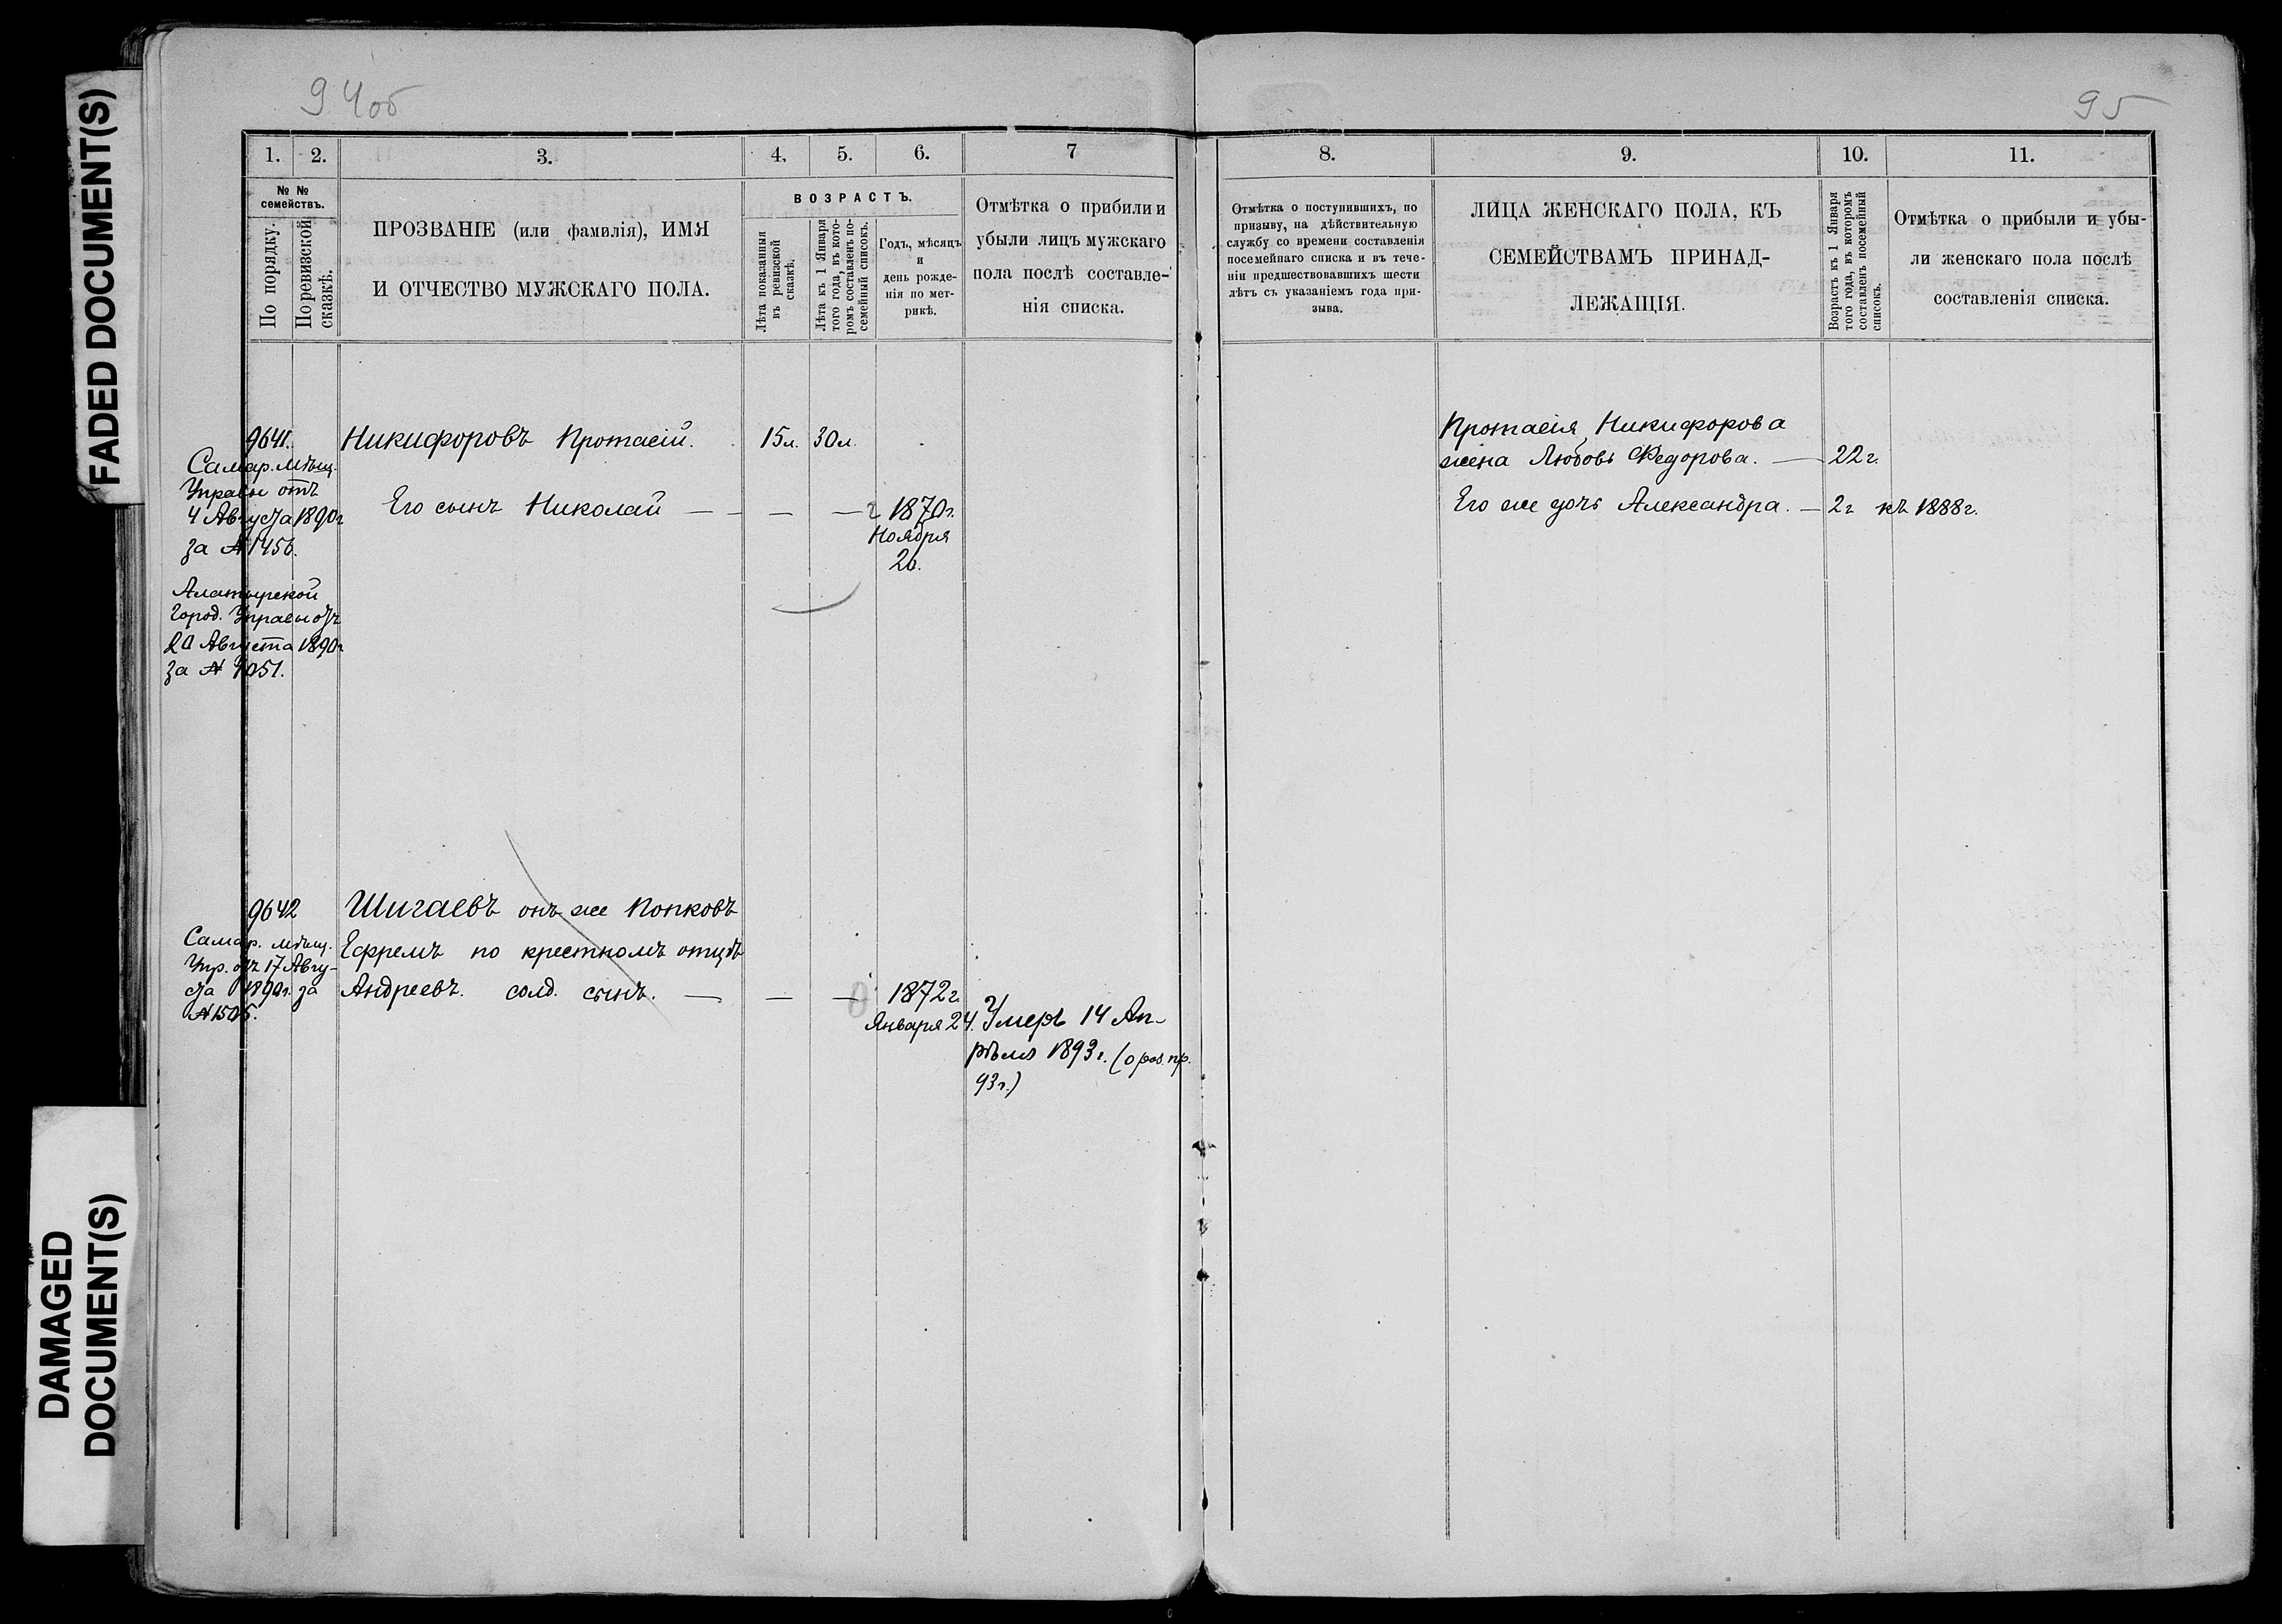 FADED DOCUMENT(S)
DAMAGED
DOCUMENT(S)
94об
1. 2. 3. 4. 5. 6. 7
№ №
семействъ.
По порядку.
По ревизской
сказкѣ.
ПРОЗВАНІЕ (или фамилія), ИМЯ
И ОТЧЕСТВО МУЖСКАГО ПОЛА.
ВОЗРАСТЪ.
Лѣта показанныя
въ ревизской
сказкѣ.
Лѣта къ 1 Января
того года, въ кото-
ромъ составленъ по-
семейный списокъ.
Годъ, мѣсяцъ
и
день рожде-
нія по мет-
рикѣ.
Отмѣтка о прибили и
убыли лицъ мужскаго
пола послѣ составле-
нія списка.
9641. Никифоровъ Протасій. 15л. 30л.
Самар. мѣщ.
Управы отъ
4 Августа 1890г
за № 1456.
Его сынъ Николай — — — — 1870г.
Ноября
20.
Алатырской
Город. Управы отъ
20 Августа 1890г
за № 1051.
9642 Шигаевъ онъ же Копковъ
Самар. мѣщ.
Упр. отъ 17 Авгу-
ста 1890г. за
№ 1505.
Ефремъ по крестномъ отцѣ
Андреевъ. солд. сынъ. — — — 1872г.
Января 24.
Умеръ 14 Ап-
рѣля 1893г. (о раз. пр.
93г.)
95
8. 9. 10. 11.
Отмѣтка о поступившихъ, по
призыву, на дѣйствительную
службу со времени составленія
посемейнаго списка и въ тече-
ніи предшествовавшихъ шести
лѣтъ съ указаніемъ года при-
зыва.
ЛИЦА ЖЕНСКАГО ПОЛА, КЪ
СЕМЕЙСТВАМЪ ПРИНАД-
ЛЕЖАЩІЯ.
Возрастъ къ 1 Января
того года, въ которомъ
составленъ посемейный
списокъ.
Отмѣтка о прибыли и убы-
ли женскаго пола послѣ
составленія списка.
Протасія Никифорова
жена Любовь Федорова. — 22г.
Его же дочь Александра. — 2г къ 1888г.